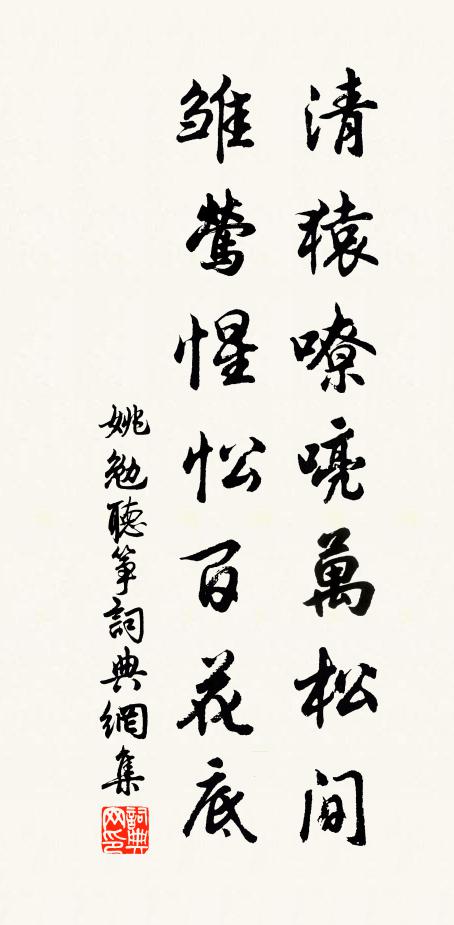 清猿嘹喨萬松間
雏鶯惺忪百花底
姚勉聽筝詞典網集
詞典网印